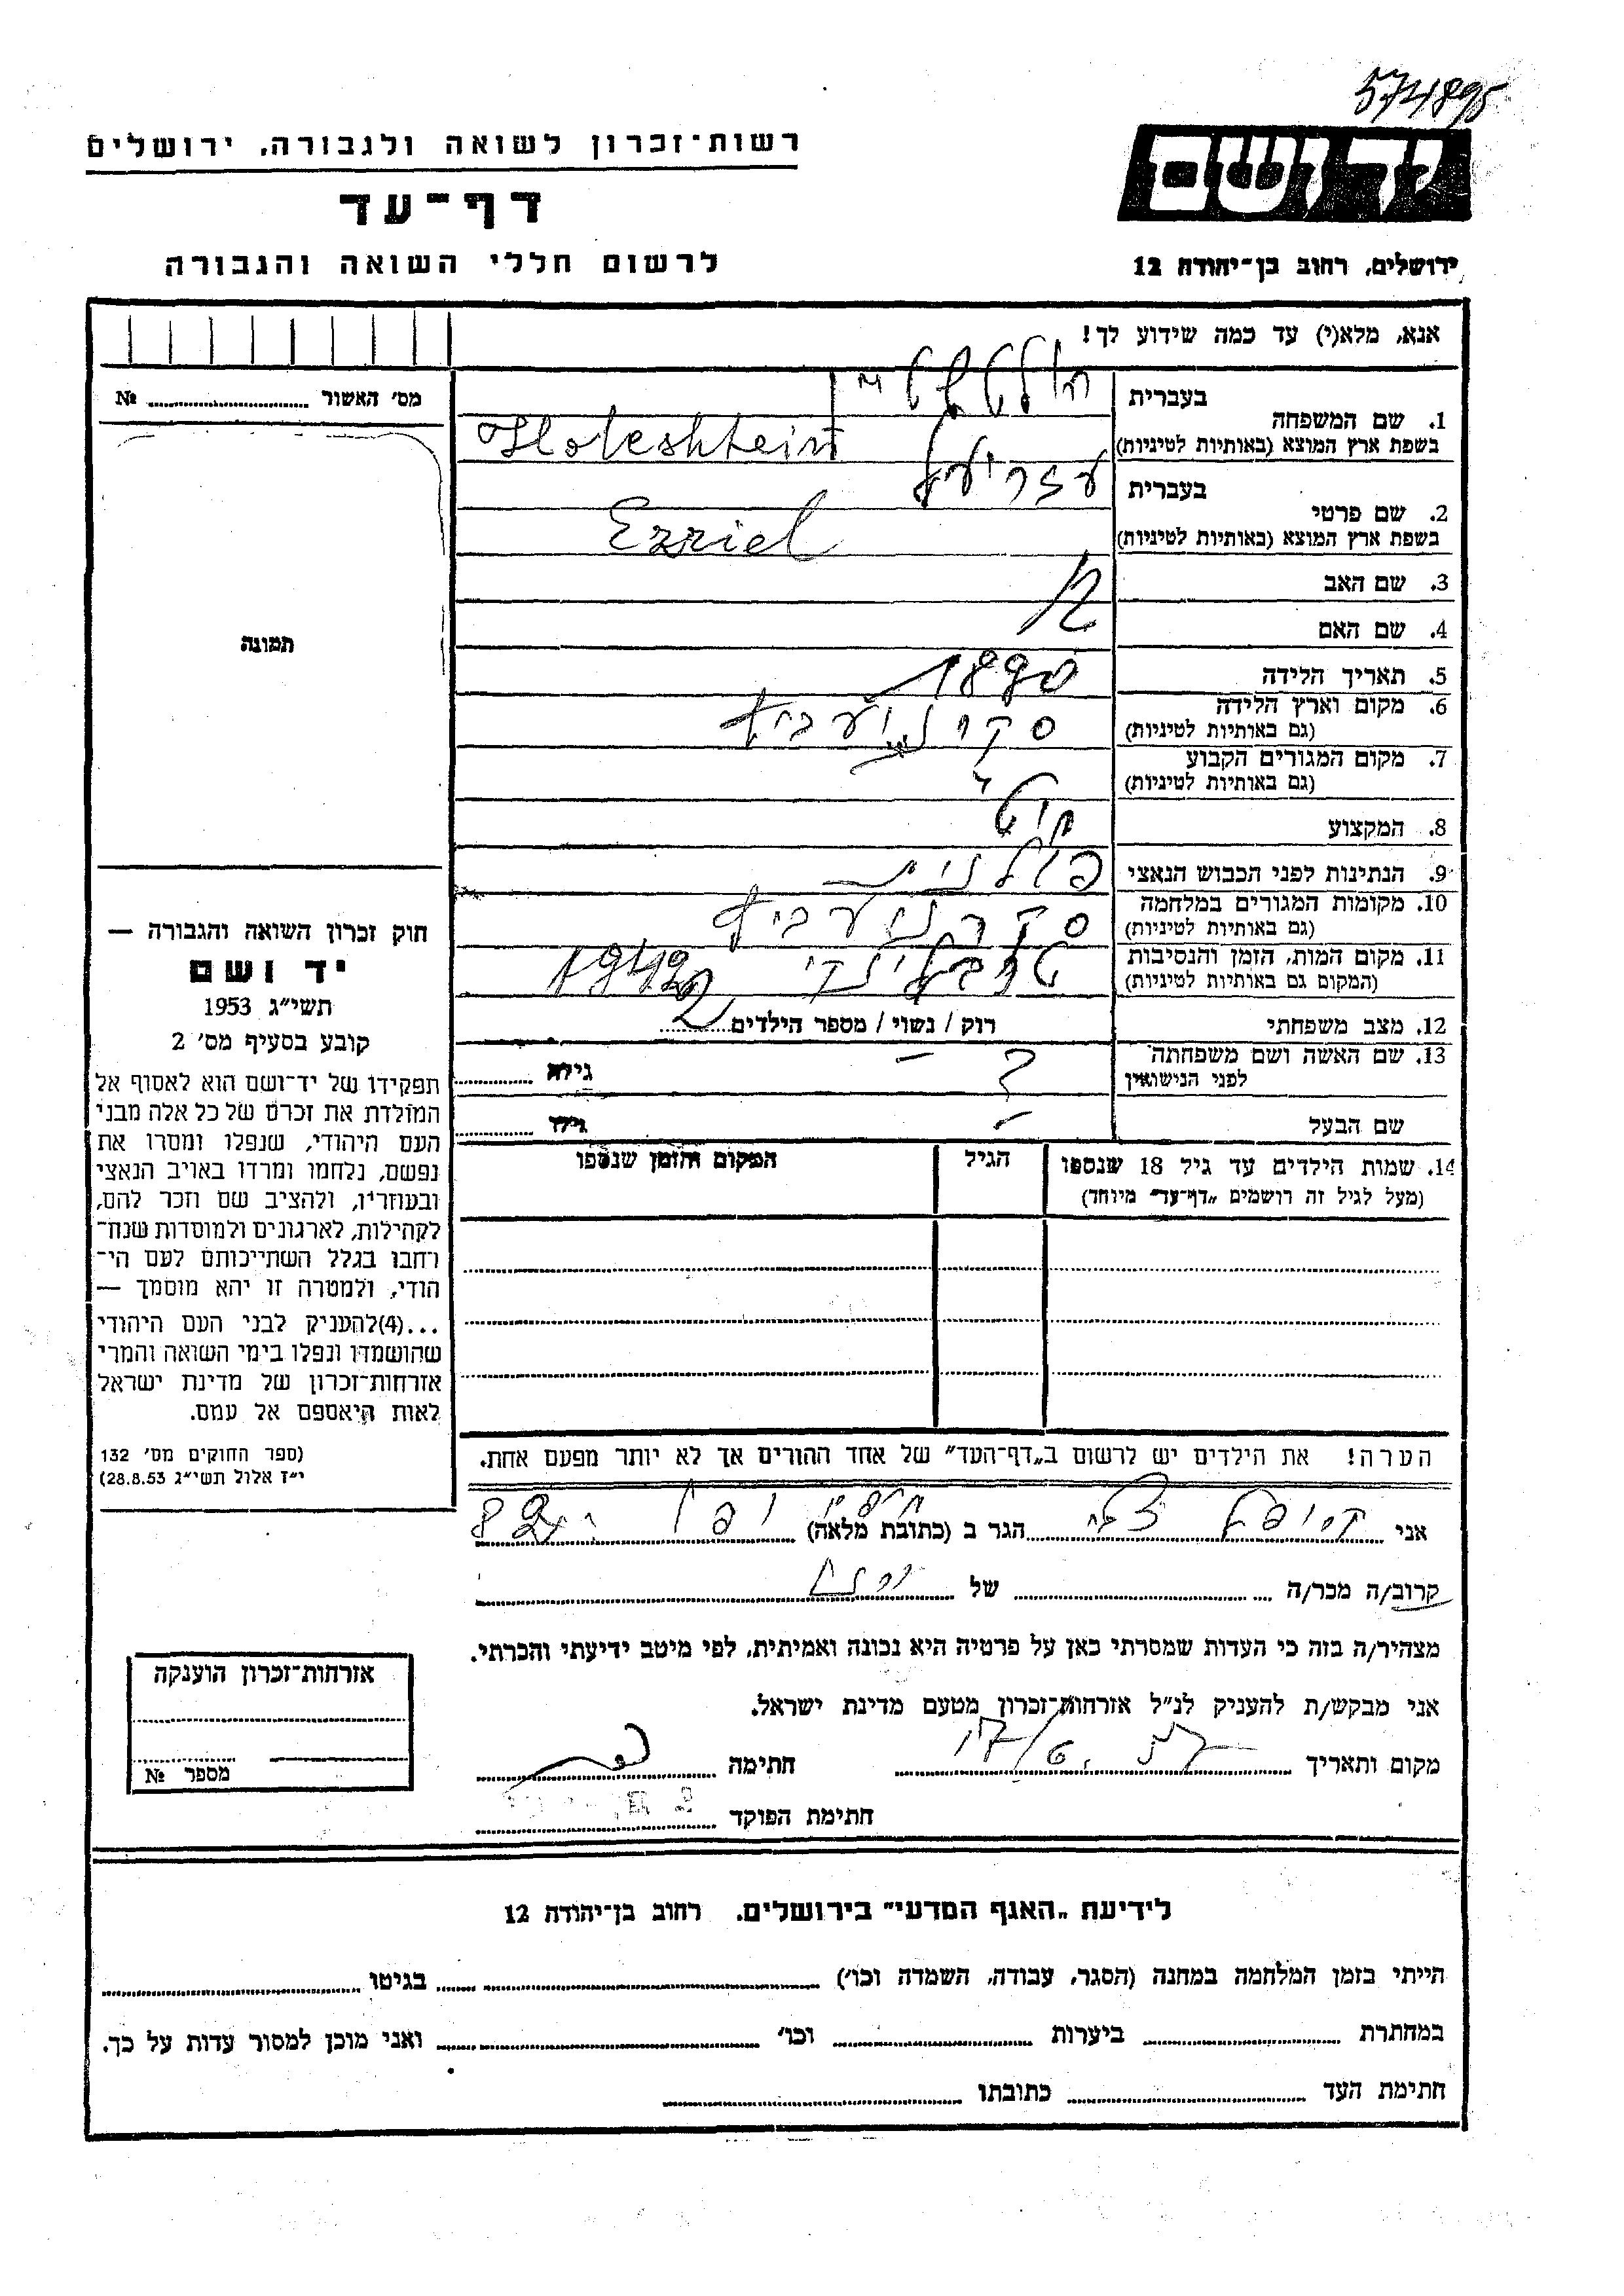 574895
רשות־זכרון לשואה ולגבורה, ירושלים
דף־עד
לרשום חללי השואה והגבורה
יד ושם
ירושלים, רחוב בן־יהודה 12
אנא, מלא(י) עד כמה שידוע לך!
מס' האשור № ........
1. שם המשפחה
בעברית
בשפת ארץ המוצא (באותיות לטיניות) Holeshtein
2. שם פרטי
בעברית עזריאל
בשפת ארץ המוצא (באותיות לטיניות) Ezriel
3. שם האב
4. שם האם
5. תאריך הלידה 1890
6. מקום וארץ הלידה
(גם באותיות לטיניות)
7. מקום המגורים הקבוע
(גם באותיות לטיניות)
8. המקצוע
9. הנתינות לפני הכבוש הנאצי פולנית
10. מקומות המגורים במלחמה
(גם באותיות לטיניות)
11. מקום המות, הזמן והנסיבות טרבלינקי 1942
(המקום גם באותיות לטיניות)
12. מצב משפחתי רוק / נשוי / מספר הילדים 2
13. שם האשה ושם משפחתה
לפני הנישואין ? – גילה ........
שם הבעל – גילו ........
14. שמות הילדים עד גיל 18 שנספו
(מעל לגיל זה רושמים „דף־עד" מיוחד)
הגיל
המקום והזמן שנספו
תמונה
חוק זכרון השואה והגבורה —
יד ושם
תשי"ג 1953
קובע בסעיף מס' 2
תפקידו של יד־ושם הוא לאסוף אל
המולדת את זכרם של כל אלה מבני
העם היהודי, שנפלו ומסרו את
נפשם, נלחמו ומרדו באויב הנאצי
ובעוזריו, ולהציב שם וזכר להם,
לקהילות, לארגונים ולמוסדות שנח־
רחבו בגלל השתייכותם לעם הי־
הודי, ולמטרה זו יהא מוסמך —
...(4)להעניק לבני העם היהודי
שהושמדו ונפלו בימי השואה והמרי
אזרחות־זכרון של מדינת ישראל
לאות היאספם אל עמם.
(ספר החוקים מס' 132
י"ז אלול תשי"ג 28.8.53)
הערה! את הילדים יש לרשום ב„דף־העד" של אחד ההורים אך לא יותר מפעם אחת.
אני ........ הגר ב (כתובת מלאה) ........ 82
קרוב/ה מכר/ה ........ של ........
מצהיר/ה בזה כי העדות שמסרתי כאן על פרטיה היא נכונה ואמיתית, לפי מיטב ידיעתי והכרתי.
אני מבקש/ת להעניק לנ"ל אזרחות־זכרון מטעם מדינת ישראל.
מקום ותאריך ........ חתימה ........
חתימת הפוקד ........
אזרחות־זכרון הוענקה
מספר №
לידיעת „האגף המדעי" בירושלים. רחוב בן־יהודה 12
הייתי בזמן המלחמה במחנה (הסגר, עבודה, השמדה וכו') ........ בגיטו ........
במחתרת ........ ביערות ........ וכו' ........ ואני מוכן למסור עדות על כך.
חתימת העד ........ כתובתו ........